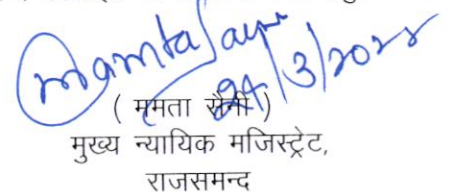 Mamta Saini
24/3/2022
( ममता सैनी )
मुख्य न्यायिक मजिस्ट्रेट,
राजसमन्द